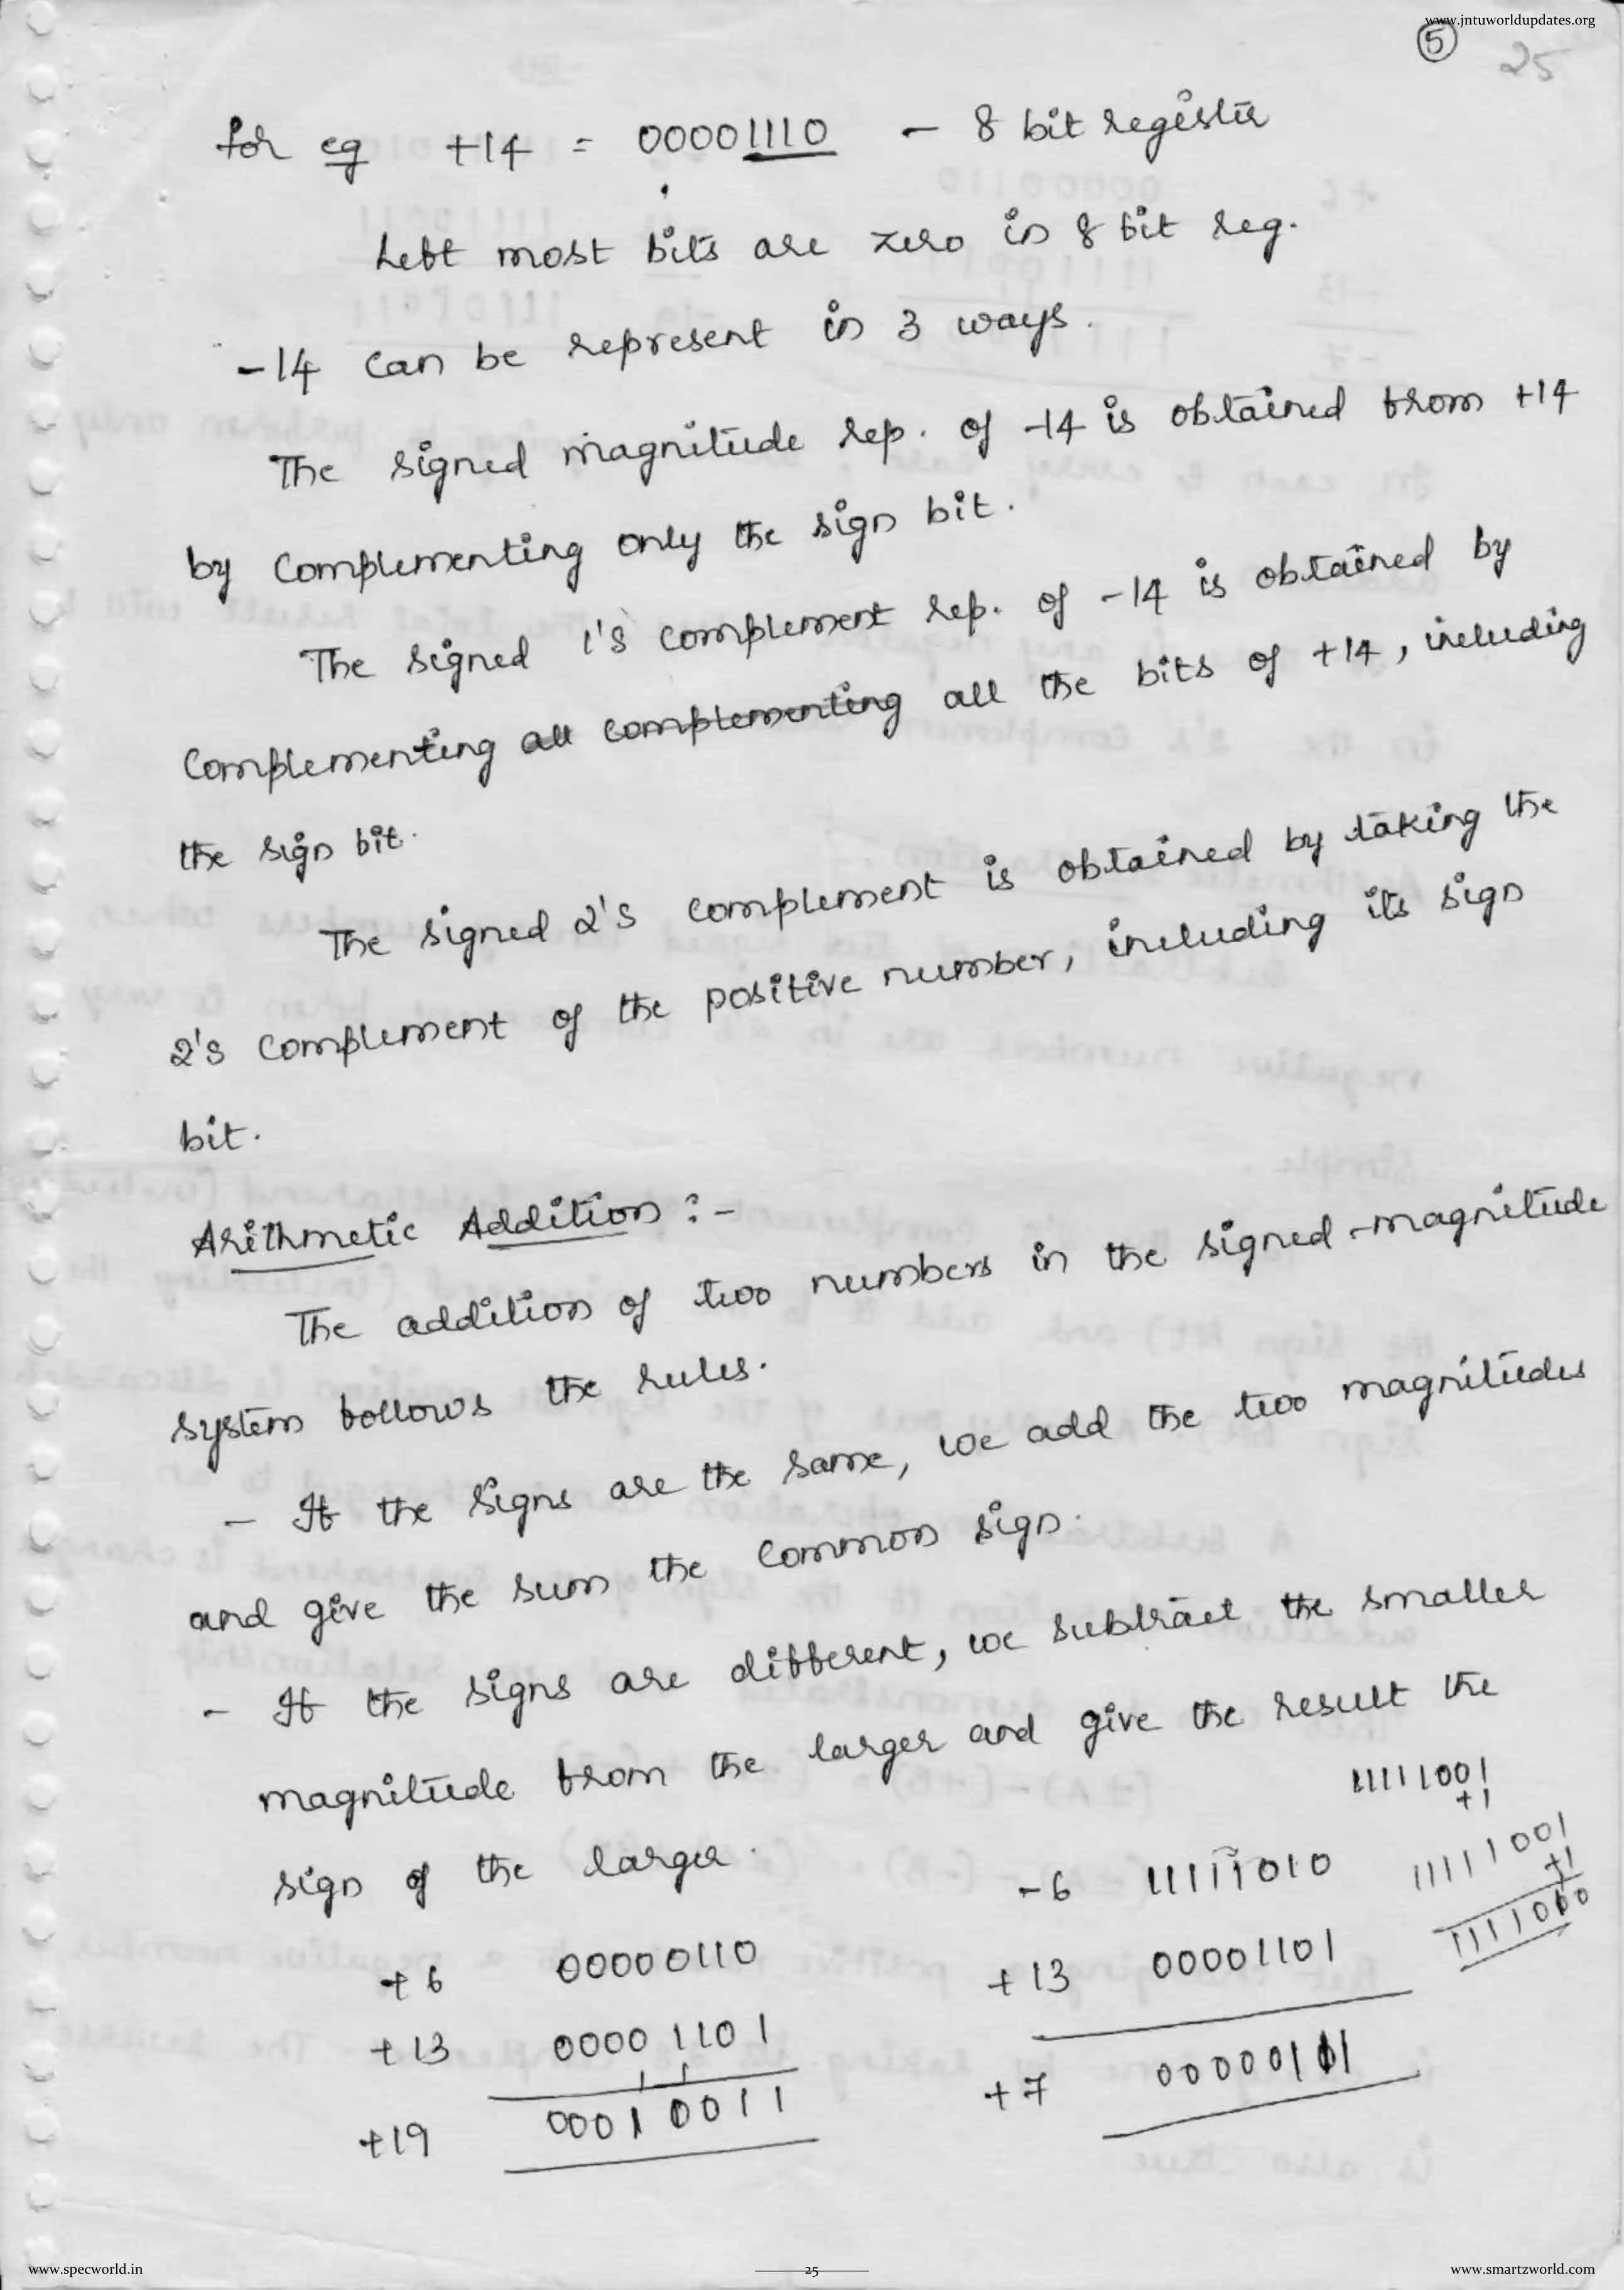 www.jntuworldupdates.org
5
25
for eg +14 = 00001110 - 8 bit register
Left most bits are zero in 8 bit reg.
-14 can be represent in 3 ways.
The signed magnitude rep. of -14 is obtained from +14
by complementing only the sign bit.
The signed 1's complement rep. of -14 is obtained by
complementing all complementing all the bits of +14, including
the sign bit.
The signed 2's complement is obtained by taking the
2's complement of the positive number, including its sign
bit.
Arithmetic Addition :-
The addition of two numbers in the signed-magnitude
system follows the rules.
- If the signs are the same, we add the two magnitudes
and give the sum the common sign.
- If the signs are different, we subtract the smaller
magnitude from the larger and give the result the
sign of the larger.
11111001
+1
-6 11111010
11111001
+1
+6 00000110
+13 00001101
+13 00001101
+19 00010011
+7 00000111
www.specworld.in
25
www.smartzworld.com